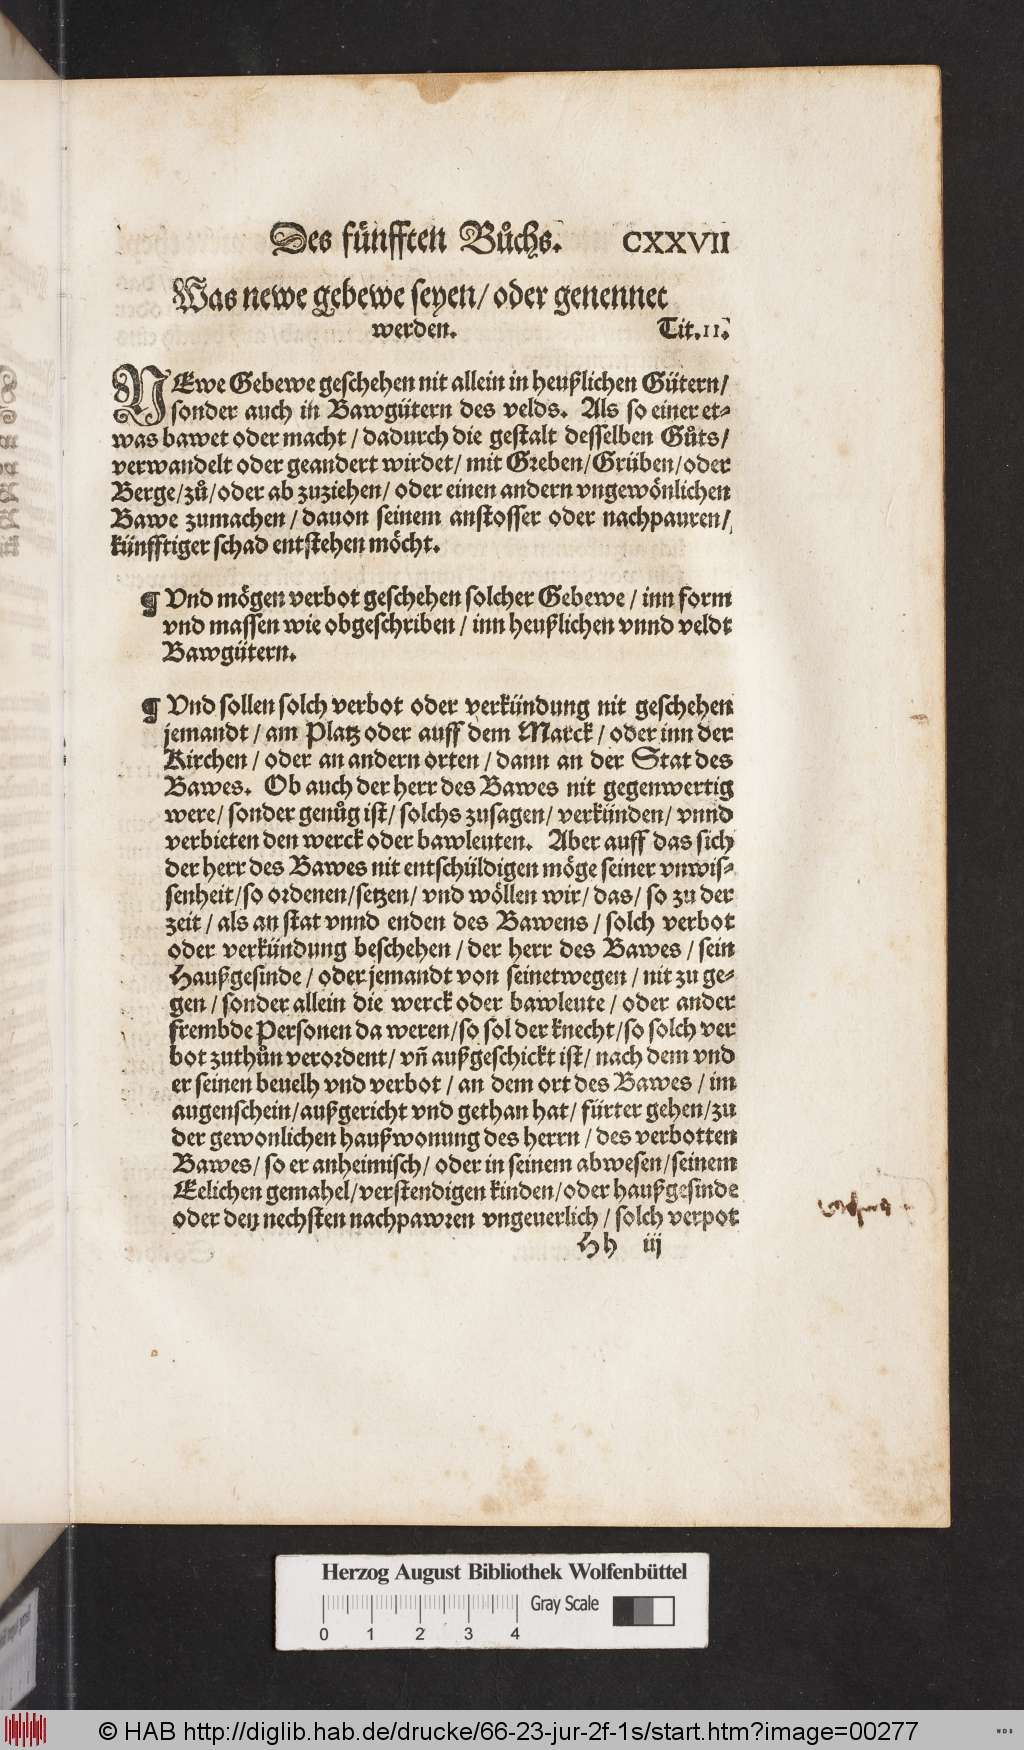 Des fünfften Bůchs. CXXVII
Was newe gebewe seyen/ oder genennet
werden. Tit. II.
NEwe Gebewe geschehen nit allein in heußlichen Gütern/
sonder auch in Bawgütern des velds. Als so einer et-
was bawet oder macht / dadurch die gestalt desselben Gůts/
verwandelt oder geandert wirdet/ mit Greben/ Grüben/ oder
Berge/ zů/ oder ab zuziehen/ oder einen andern vngewönlichen
Bawe zumachen / dauon seinem anstosser oder nachpauren/
künfftiger schad entstehen möcht.
¶ Vnd mögen verbot geschehen solcher Gebewe / inn form
vnd massen wie obgeschriben / inn heußlichen vnnd veldt
Bawgütern.
¶ Vnd sollen solch verbot oder verkündung nit geschehen
jemandt / am Platz oder auff dem Marck / oder inn der
Kirchen / oder an andern orten / dann an der Stat des
Bawes. Ob auch der herr des Bawes nit gegenwertig
were/ sonder genůg ist/ solchs zusagen/ verkünden/ vnnd
verbieten den werck oder bawleuten. Aber auff das sich
der herr des Bawes nit entschüldigen möge seiner vnwis-
senheit/ so ordenen/ setzen/ vnd wöllen wir/ das/ so zu der
zeit / als an stat vnnd enden des Bawens / solch verbot
oder verkündung beschehen / der herr des Bawes / sein
Haußgesinde / oder jemandt von seinetwegen / nit zu ge-
gen / sonder allein die werck oder bawleute / oder ander
frembde Personen da weren/ so sol der knecht/ so solch ver
bot zuthůn verordent/ vñ außgeschickt ist/ nach dem vnd
er seinen beuelh vnd verbot / an dem ort des Bawes / im
augenschein/ außgericht vnd gethan hat/ fürter gehen/ zu
der gewonlichen haußwonung des herrn / des verbotten
Bawes/ so er anheimisch/ oder in seinem abwesen/ seinem
Eelichen gemahel/ verstendigen kinden/ oder haußgesinde
oder den nechsten nachpawren vngeuerlich / solch verpot
Hh iij
Herzog August Bibliothek Wolfenbüttel
Gray Scale
0 1 2 3 4
© HAB http://diglib.hab.de/drucke/66-23-jur-2f-1s/start.htm?image=00277